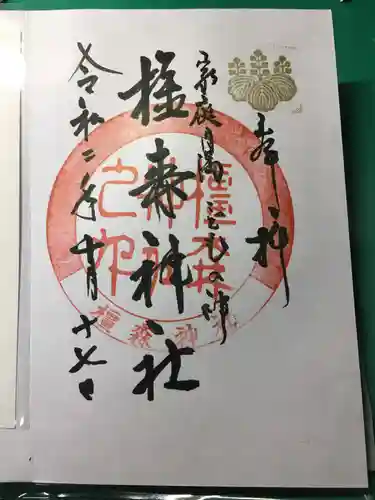 奉拝
家庭円満こどもの神
橿森神社
令和二年十月十七日
橿森
神社
之印
橿森神社